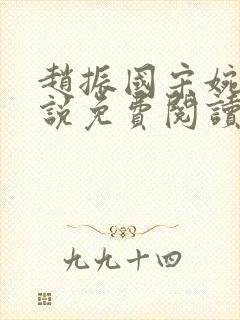 趙振國宋婉
說免費閱讀
九九十四